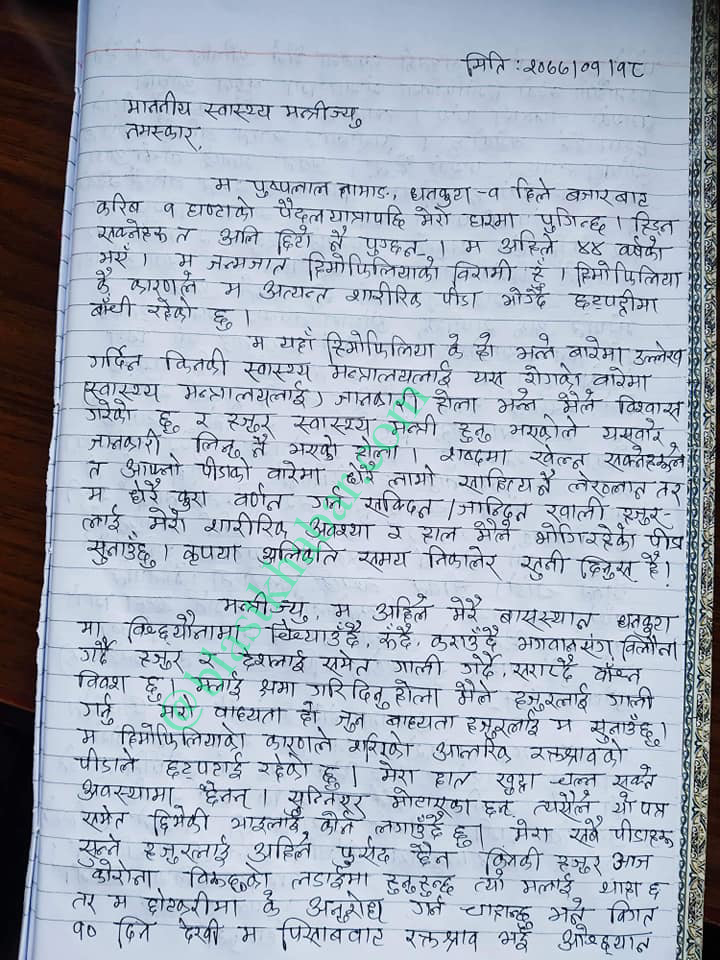 मिति : २०७७/०१/१८
माननीय स्वास्थ्य मन्त्रीज्यु
नमस्कार,
म पुष्पलाल तामाङ, धनकुटा -१ हिले बजारबाट
करिब १ घण्टाको पैदलयात्रापछि मेरो घरमा पुगिन्छ । हिड्न
सक्नेहरु त अलि छिटो नै पुग्छन् । म अहिले ४४ वर्षको
भएँ । म जन्मजात हिमोफिलियाको विरामी हुँ । हिमोफिलिया
कै कारणले म अत्यन्त शारीरिक पीडा भोग्दै छट्पट्टीमा
बाँची रहेको छु ।
म यहाँ हिमोफिलिया के हो भन्ने बारेमा उल्लेख
गर्दिन किनकी स्वास्थ्य मन्त्रालयलाई यस रोगको बारेमा
(स्वास्थ्य मन्त्रालयलाई) जानकारी होला भन्ने मैले विश्वास
गरेको छु र हजुर स्वास्थ्य मन्त्री हुनु भएकोले यसबारे
जानकारी लिनु नै भएको होला । शब्दमा खेल्न सक्नेहरुले
त आफ्नो पीडाको बारेमा धेरै लामो साहित्य नै लेख्लान तर
म धेरै कुरा वर्णन गर्न सक्दिन / जान्दिन खाली हजुर-
लाई मेरो शारीरिक अवस्था र हाल मैले भोगिरहेको पीडा
सुनाउँछु । कृपया अलिकति समय निकालेर सुनी दिनुस है।
मन्त्रीज्यु, म अहिले मेरै बासस्थान धनकुटा
मा विछ्यौनामा चिच्याउँदै, रुँदै, कराउँदै भगवानसंग विलौना
गर्दै हजुर र देशलाई समेत गाली गर्दै, सराप्दै बाँच्न
विवश छु । मलाई क्षमा गरिदिनुहोला मैले हजुरलाई गाली
गर्नु मेरो वाध्यता हो जुन बाध्यता हजुरलाई म सुनाउँछु।
म हिमोफिलियाको कारणले शरिरको आन्तरिक रक्तश्रावको
पीडाले छट्पटाई रहेको छु । मेरा हात खुट्टा चल्न सक्ने
अवस्थामा छैनन् । सुन्निएर मोटाएका छन् त्यसैले यो पत्र
समेत छिमेकी भाइलाई कोर्न लगाउँदै छु । मेरा सबै पीडाहरु
सुन्ने हजुरलाई अहिले फुर्सद छैन किनकी हजुर आज
कोरोना विरुद्धको लडाईमा हुनुहुन्छ त्यो मलाई थाहा छ
तर म छोटकरीमा के अनुरोध गर्न चाहान्छु भने विगत
१० दिन देखी म पिसाबबाट रक्तश्राव भई
@blastkhabar.com